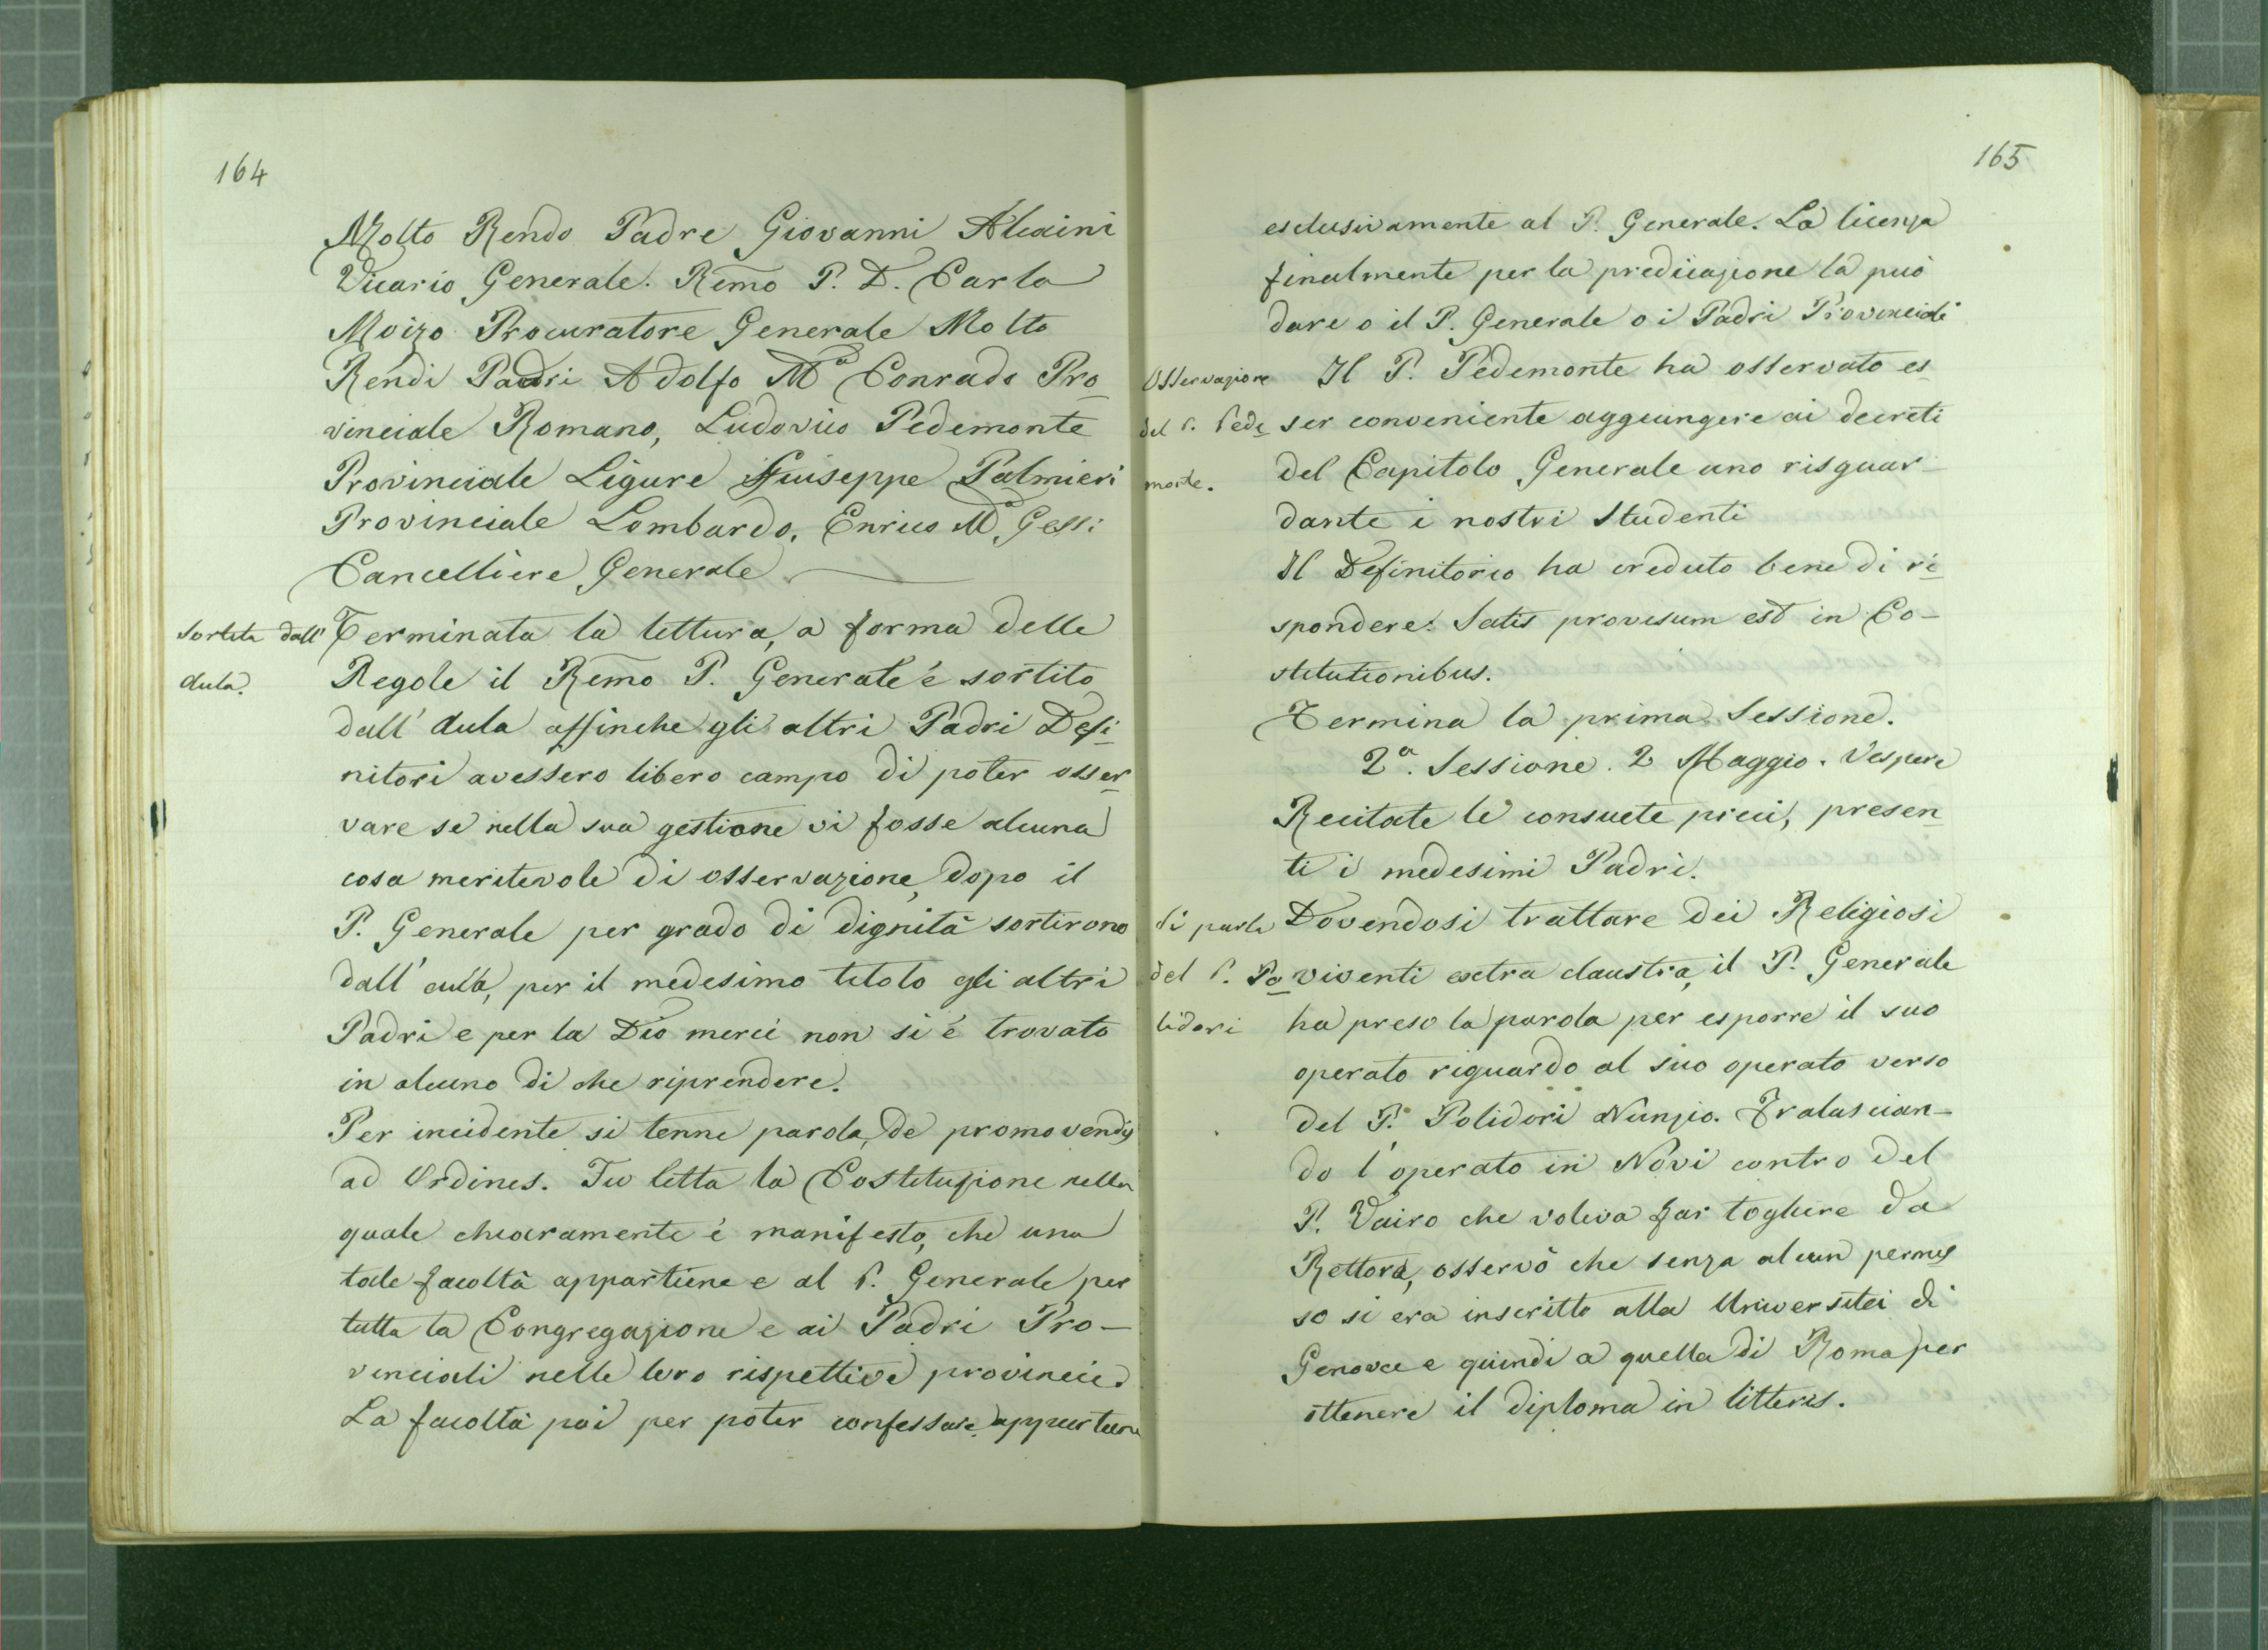 164
Molto Rendo Padre Giovanni Alcaini
Vicario Generale. Remo P. D. Carlo
Moizo Procuratore Generale Molto
Rendi Padri Adolfo Ma Conrado Pro-
vinciale Romano, Ludovico Pedemonte
Provinciale Ligure Giuseppe Palmieri
Provinciale Lombardo, Enrico Ma Gessi
Cancelliere Generale
Sortita dall'
Aula.
Terminata la lettura, a forma delle
Regole il Remo P. Generale é sortito
dall' Aula affinche gli altri Padri Defi-
nitori avessero libero campo di poter osser-
vare se nella sua gestione vi fosse alcuna
cosa meritevole di osservazione, dopo il
P. Generale per grado di dignità sortirono
dall' aula, per il medesimo titolo gli altri
Padri e per la Dio mercé non si é trovato
in alcuno di che riprendere.
Per incidente si tenne parola de promovendis
ad Ordines. Fu letta la Costituzione nella
quale chiaramente é manifesto, che una
tale facoltà appartiene e al P. Generale per
tutta la Congregazione e ai Padri Pro-
vinciali nelle loro rispettive provincie.
La facoltà poi per poter confessare appartiene
165
esclusivamente al P. Generale. La licenza
finalmente per la predicazione la può
dare o il P. Generale o i Padri Provinciali
Osservazione
del P. Pede-
monte.
Il P. Pedemonte ha osservato es-
ser conveniente aggiungere ai decreti
del Capitolo Generale uno risguar-
dante i nostri Studenti
Il Definitorio ha creduto bene di ri-
spondere: Satis provisum est in Co-
stitutionibus.
Termina la prima Sessione.
2a. Sessione. 2 Maggio. Vespere
Recitate le consuete preci, presen-
ti i medesimi Padri.
Si parla
del P. Po-
lidori
Dovendosi trattare dei Religiosi
viventi extra claustra, il P. Generale
ha preso la parola per esporre il suo
operato riguardo al suo operato verso
del P. Polidori Nunzio. Tralascian-
do l'operato in Novi contro del
P. Vairo che voleva far togliere da
Rettore, osservò che senza alcun permes
so si era inscritto alla Università di
Genova e quindi a quella di Roma per
ottenere il diploma in litteris.